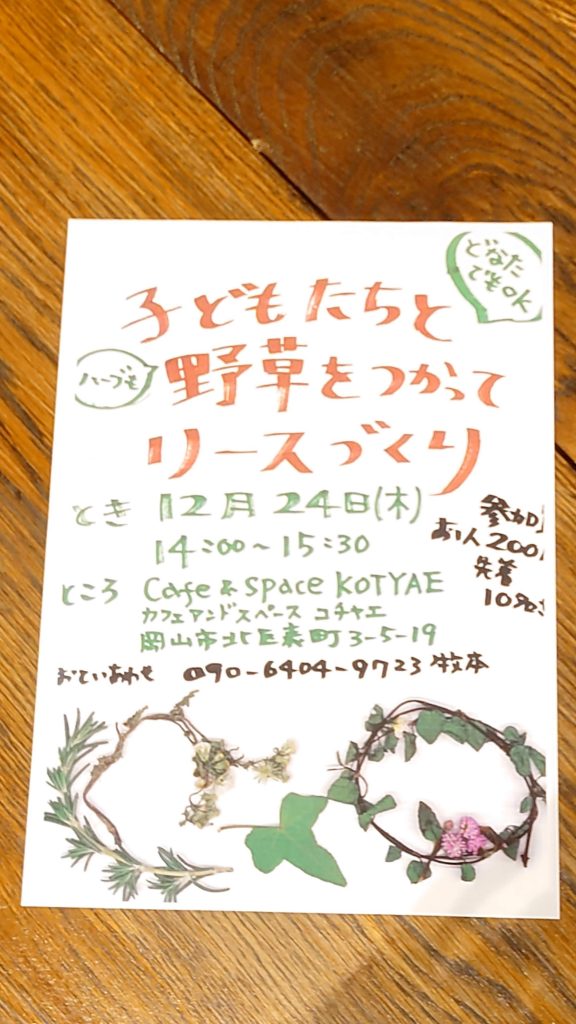 どなた
でもOK
子どもたちと
ハーブも
野草をつかって
リースづくり
とき 12月 24日(木)
14:00〜15:30
参加
お1人 200
先着
10名
ところ Cafe & Space KOTYAE
カフェアンドスペース コチャエ
岡山市北区表町3-5-19
おといあわせ 090-6404-9723 牧本